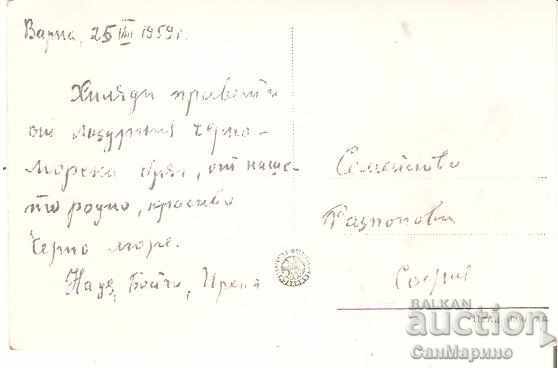 Варна, 25 VIII 1959 г.
Хиляди привети
от лазурния черно-
морски бряг, от наше-
то родно, красиво
Черно море.
Надя, Бойчо, Ирена
Семейство
София
BALKAN
auction
СанМарино